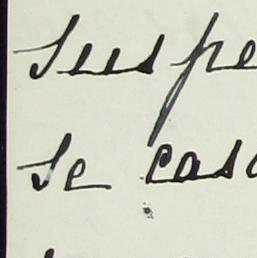 Suspe
Se casa